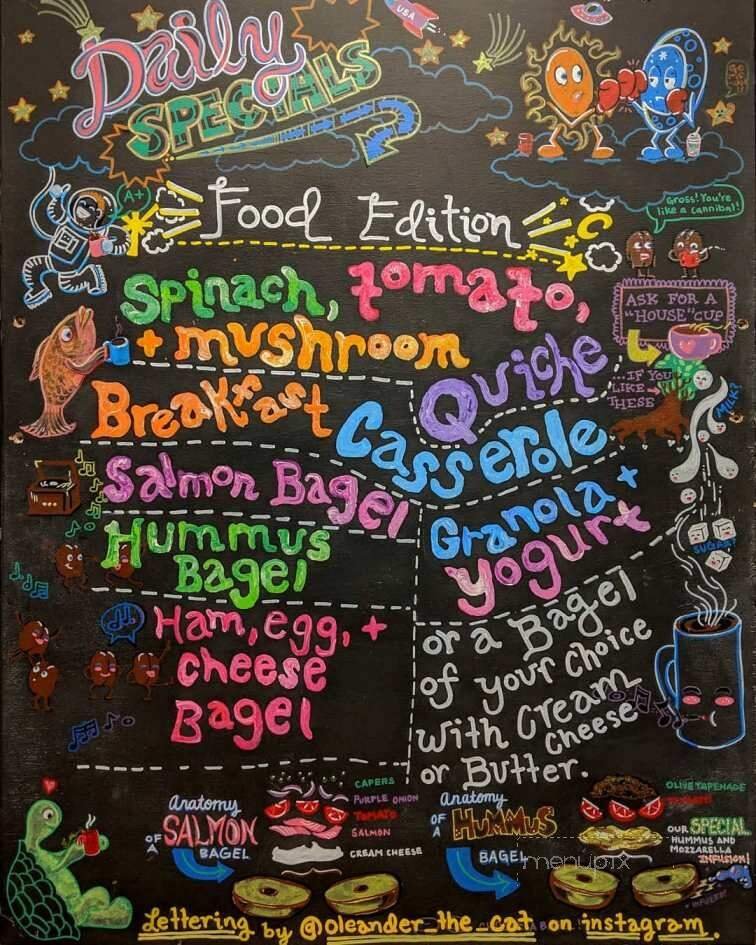 USA
Daily
SPECIALS
A+
Food Edition
Gross! You're
like a cannibal!
Spinach, tomato,
+ mushroom
Quiche
ASK FOR A
"HOUSE" CUP
...IF YOU
LIKE
THESE
MILK?
Breakfast
Casserole
Salmon Bagel
Granola +
yogurt
SUGAR?
Hummus
Bagel
Ham, egg, +
cheese
Bagel
or a Bagel
of your choice
with Cream
Cheese
or Butter.
Anatomy
OF A
SALMON
BAGEL
CAPERS
PURPLE ONION
TOMATO
SALMON
CREAM CHEESE
Anatomy
OF A
HUMMUS
BAGEL
OLIVE TAPENADE
TOMATO
OUR SPECIAL
HUMMUS AND
MOZZARELLA
INFUSION!
menupix
Lettering by @oleander_the_cat on instagram.